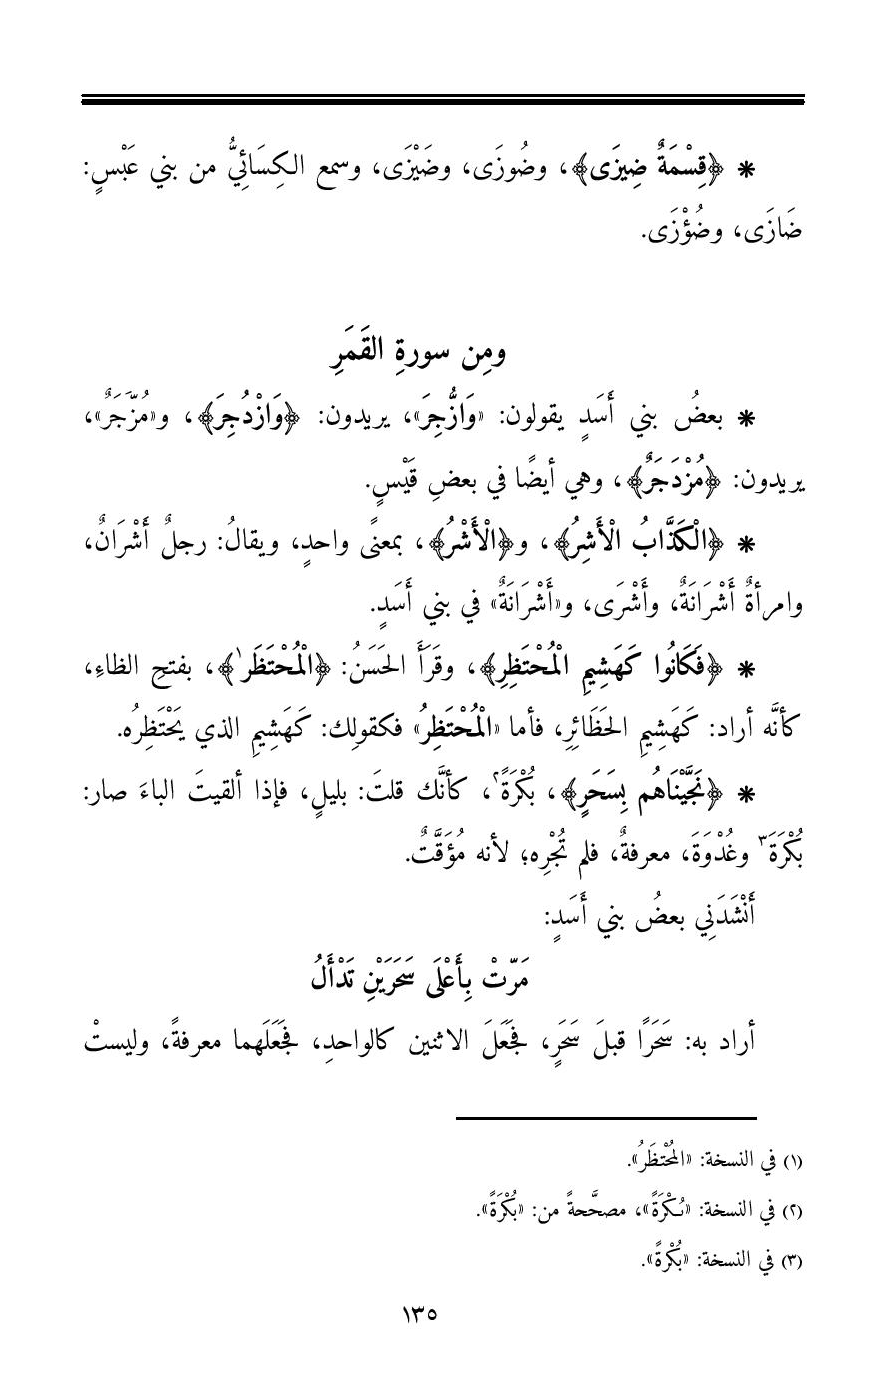 * ﴿قِسْمَةٌ ضِيزَى﴾، وضُوزَى، وضَيْزَى، وسمع الكِسَائِيُّ من بني عَبْسٍ:
ضَازَى، وضُؤْزَى.
ومِن سورةِ القَمَرِ
* بعضُ بني أَسَدٍ يقولون: «وَازُّجِرَ»، يريدون: ﴿وَازْدُجِرَ﴾، و«مُزَّجَرٌ»،
يريدون: ﴿مُزْدَجَرٌ﴾، وهي أيضًا في بعضِ قَيْسٍ.
* ﴿الْكَذَّابُ الْأَشِرُ﴾، و﴿الْأَشْرُ﴾، بمعنًى واحدٍ، ويقالُ: رجلٌ أَشْرَانٌ،
وامرأةٌ أَشْرَانَةٌ، وأَشْرَى، و«أَشْرَانَةٌ» في بني أَسَدٍ.
* ﴿فَكَانُوا كَهَشِيمِ الْمُحْتَظِرِ﴾، وقَرَأَ الحَسَنُ: ﴿الْمُحْتَظَر١﴾، بفتحِ الظاءِ،
كأنَّه أراد: كَهَشِيمِ الحَظَائِرِ، فأما «الْمُحْتَظِرُ» فكقولِك: كَهَشِيمِ الذي يَحْتَظِرُه.
* ﴿نَجَّيْنَاهُم بِسَحَرٍ﴾، بُكْرَةً٢، كأنَّك قلتَ: بليلٍ، فإذا ألقيتَ الباءَ صار:
بُكْرَةَ٣ وغُدْوَةَ، معرفةٌ، فلم تُجْرِه؛ لأنه مُؤَقَّتٌ.
أَنْشَدَنِي بعضُ بني أَسَدٍ:
مَرّتْ بِأَعْلَى سَحَرَيْنِ تَدْأَلُ
أراد به: سَحَرًا قبلَ سَحَرٍ، فجَعَلَ الاثنين كالواحدِ، فجَعَلَهما معرفةً، وليستْ
(١) في النسخة: «المُحْتظَرُ».
(٢) في النسخة: «نُـكْرَةً»، مصحَّحةً من: «بُكْرَةً».
(٣) في النسخة: «بُكْرةً».
١٣٥